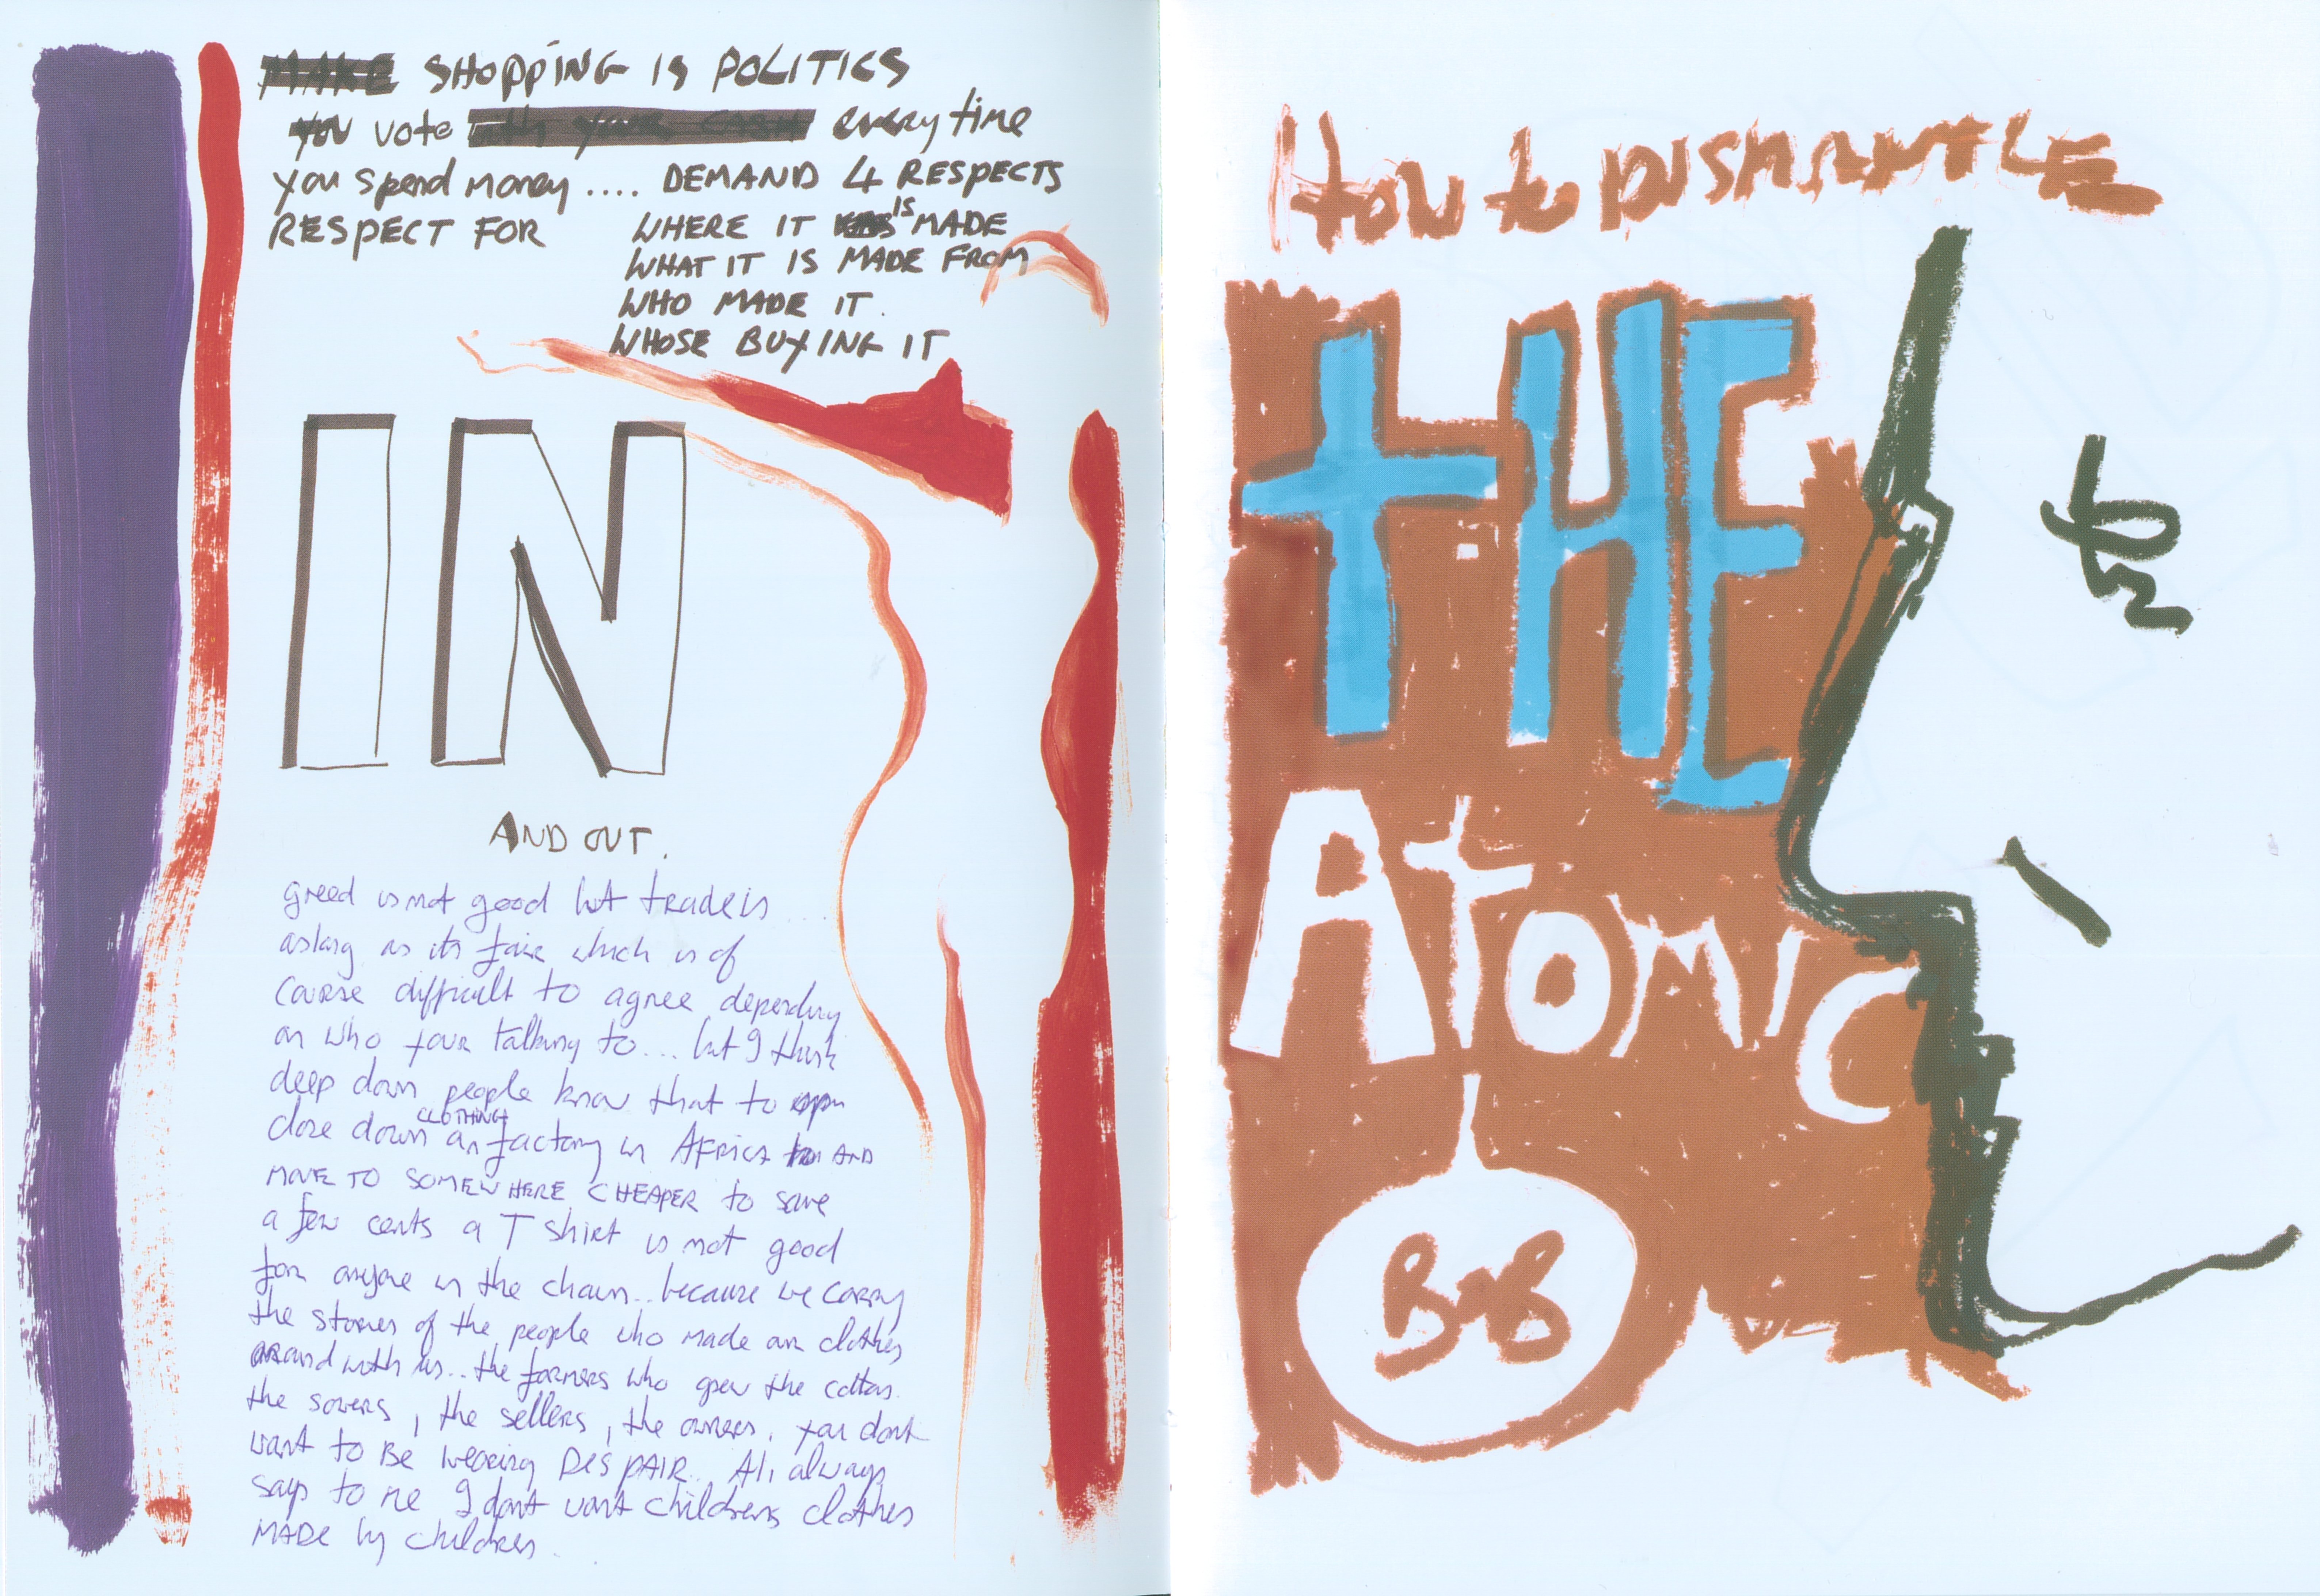 MAKE SHOPPING IS POLITICS
YOU vote with YOUR CASH every time
you spend money .... DEMAND 4 RESPECTS
RESPECT FOR WHERE IT IS MADE
WHAT IT IS MADE FROM
WHO MADE IT.
WHOSE BUYING IT
IN
AND OUT.
greed is not good but trade is ....
aslong as its fair which is of
course difficult to agree depending
on who your talking to... but I think
deep down people know that to open
close down an CLOTHING factory in AFRICA AND
MOVE TO SOMEWHERE CHEAPER to save
a few cents a T shirt is not good
for anyone in the chain.. because we carry
the stories of the people who made our clothes
around with us.. the farmers who grew the cotton.
the sowers, the sellers, the owners. you dont
want to BE wearing DESPAIR.. Ali always
says to me I dont want childrens clothes
MADE by children.
How to DISMANTLE
tHE
AtOMIC
BOB